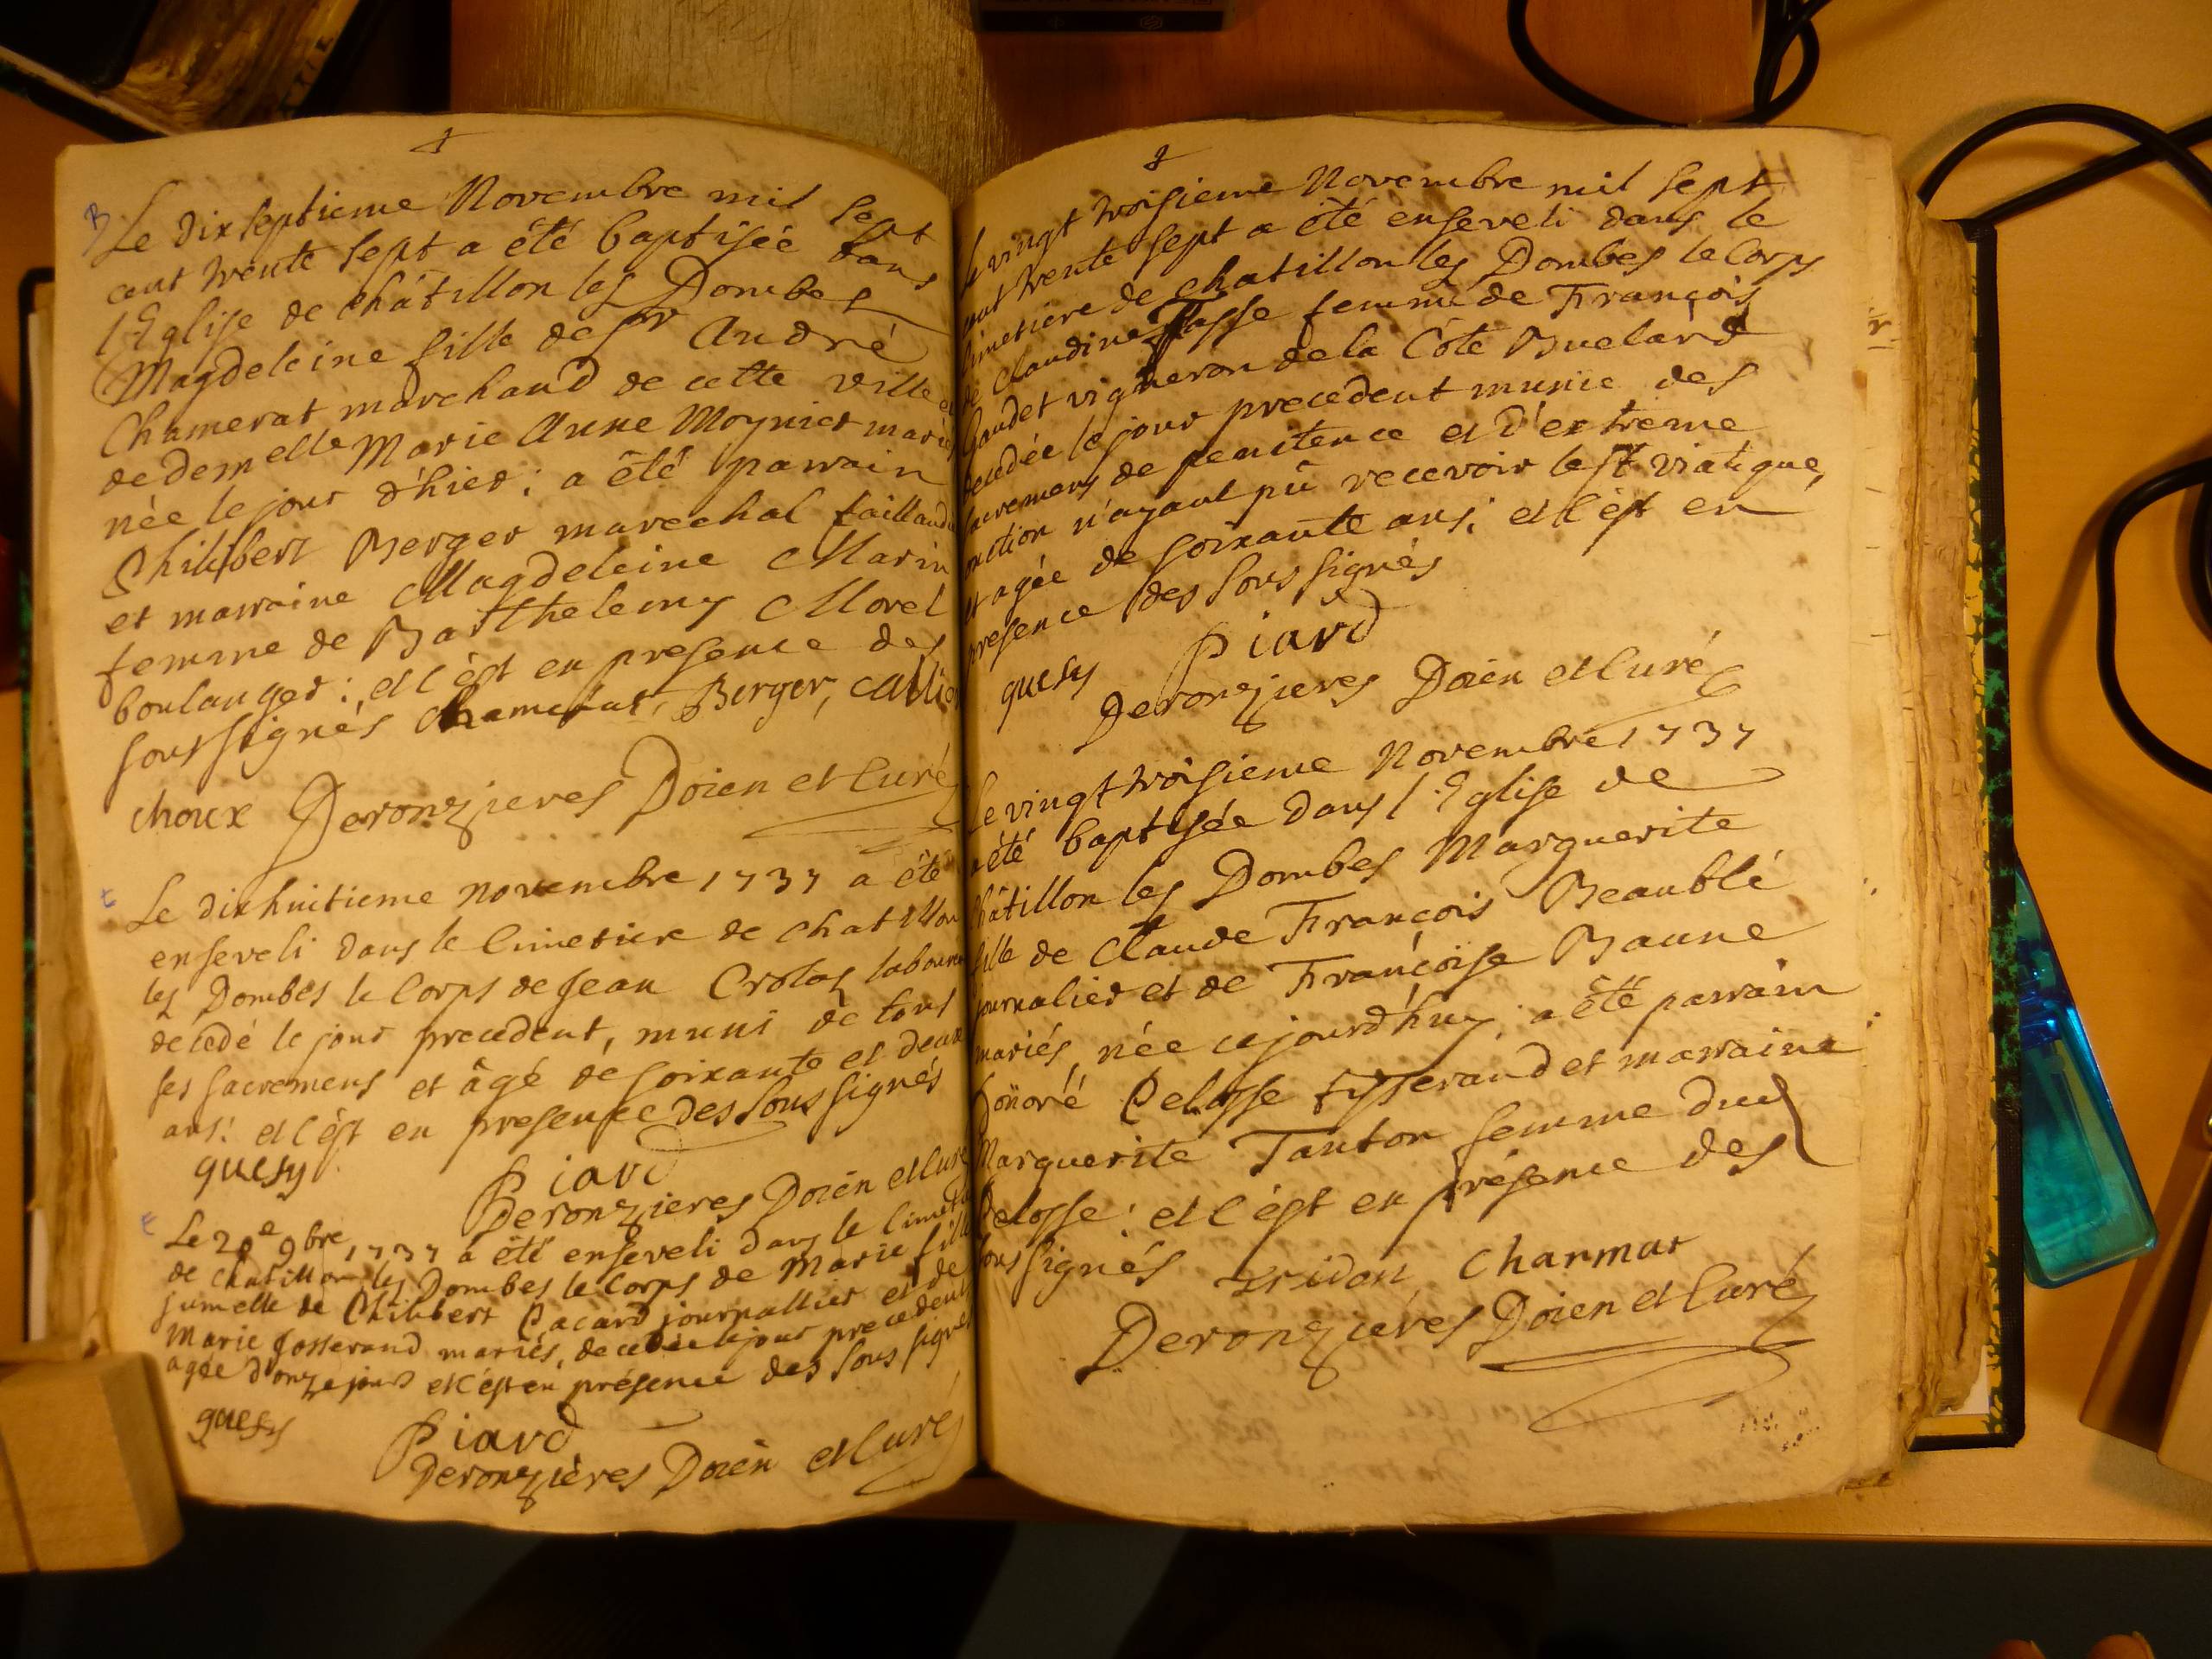 B
Le dixseptieme Novembre mil sept
cent trente sept a été baptisée dans
l'Eglise de châtillon les Dombes
Magdeleine fille de Sr André
Chamerat marchand de cette ville et
de demelle Marie Anne Moynier mariés
née le jour d'hier; a été parrain
Philibert Berger marechal taillandier
et marraine Magdeleine Marin
femme de Barthelemy Morel
boulanger: et c'est en presence des
soussignés Chamerat, Berger, Callier
choux Deronzieres Doien et Curé
Le dixhuitieme novembre 1737 a été
enseveli dans le Cimetiere de chatillon
les Dombes le Corps de Jean Crolas laboureur
decedé le jour precedent, muni de tous
les sacremens et âgé de soixante et deux
ans: et c'est en presence des sous signés
quesy Piard
Deronzieres Doien et Curé
Le 20e 9bre 1737 a été enseveli dans le Cimetiere
de chatillon les Dombes le Corps de Marie fille
jumelle de Philibert Pacard journallier et de
Marie Josserand mariés, decedée le jour precedent
agée d'onze jours et c'est en présence des sous signés
quesy Piard
Deronzières Doien et Curé
le vingt troisieme Novembre mil sept
cent trente sept a été enseveli dans le
Cimetiere de chatillon les Dombes le Corps
de Claudine Passe femme de François
Gaudet vigneron de la Côte Buelard
decedée le jour precedent munie des
sacremens de penitence et d'extreme
onction n'ayant pû recevoir le St viatique,
et agée de soixante ans; et c'est en
presence des sous signés
quesy Piard
Deronzieres Doien et Curé
Le vingt troisieme Novembre 1737
a été baptisée dans l'Eglise de
châtillon les Dombes Marguerite
fille de Claude François Beaublé
journalier et de Françoise Baune
mariés, née cejourd'huy; a été parrain
honoré Pelosse tisserand et marraine
Marguerite Tanton femme dud
Pelosse: et c'est en présence des
sous signés Charmat
Deronzières Doien et Curé